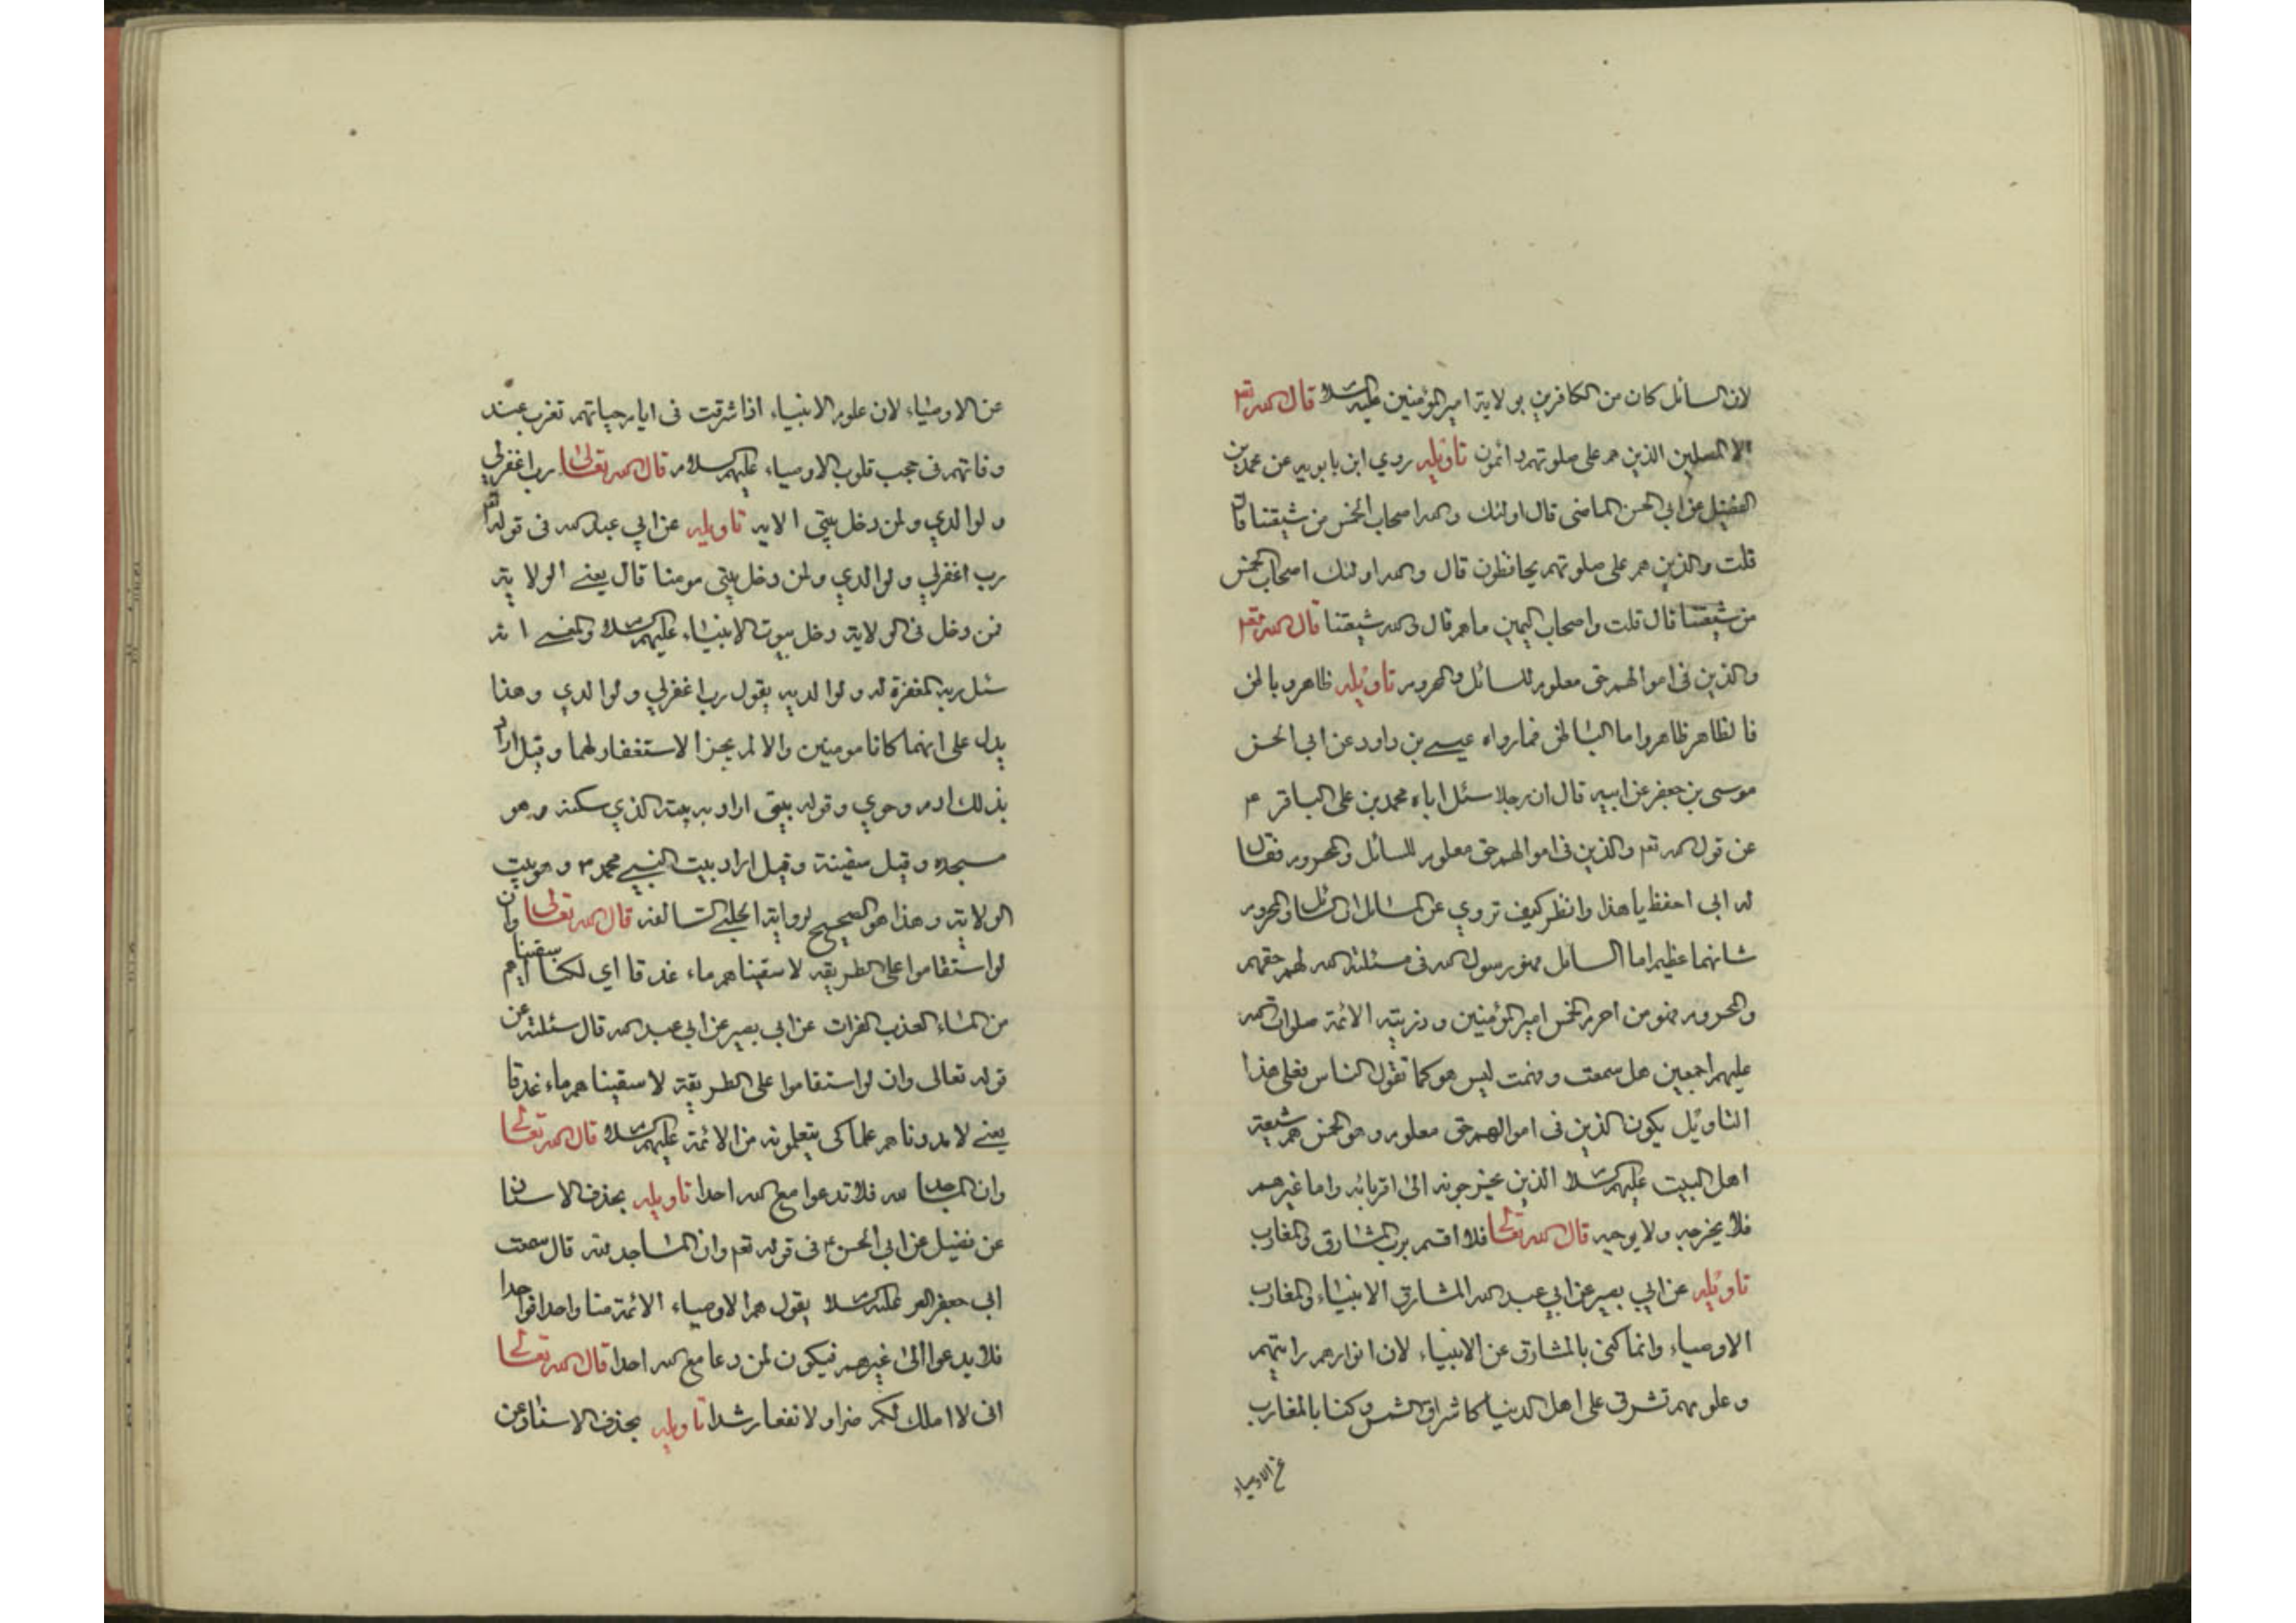 لان السائل كان من الكافرين بولاية امير المؤمنين عليه السلا قال الله تعم
الا المصلين الذين هم على صلوتهم دائمون تاويله روي ابن بابويه عن محمد بن
الفضيل عن ابي الحسن الماضي قال اولئك والله اصحاب الخمس من شيعتنا قال
قلت والذين هم على صلوتهم يحافظون قال والله اولئك اصحاب الخمس
من شيعتنا قال قلت واصحاب اليمين ما هم قال والله شيعتنا قال الله تعم
والذين في اموالهم حق معلوم للسائل والمحروم تاويله ظاهر وباطن
فالظاهر ظاهر واما الباطن فمارواه عيسى بن داود عن ابي الحسن
موسى بن جعفر عن ابيه قال ان رجلا سئل اباه محمد بن علي الباقر ع
عن قول الله تعم والذين في اموالهم حق معلوم للسائل والمحروم فقال
له ابي احفظ يا هذا وانظر كيف تروي عن السائل والمحروم
شانهما عظيم اما السائل فهو رسول الله في مسئلته الله لهم حقهم
والمحروم فهو من احرم الخمس امير المؤمنين وذريته الائمة صلوات الله
عليهم اجمعين هل سمعت وفهمت ليس هو كما تقول الناس فعلى هذا
التاويل يكون الذين في اموالهم حق معلوم وهو الخمس هم شيعة
اهل البيت عليهم السلا الذين يخرجونه الى اقربائه واما غيرهم
فلا يخرجه ولا يوجبه قال الله تعالى فلا اقسم برب المشارق والمغارب
تاويله عن ابي بصير عن ابي عبد الله المشارق الانبياء والمغارب
الاوصياء وانما كنى بالمشارق عن الانبياء لان انوارهم رايتهم
وعلومهم تشرق على اهل الدنيا كاشراق الشمس وكنا بالمغارب
عن الاوصياء
عن الاوصياء لان علوم الانبياء اذا شرقت في ايام حياتهم تغرب عند
وفاتهم في حجب قلوب الاوصياء عليهم السلام قال الله تعالى رب اغفر لي
ولوالدي ولمن دخل بيتي الايه تاويله عن ابي عبد الله في قوله تعم
رب اغفر لي ولوالدي ولمن دخل بيتي مومنا قال يعني الولاية
فمن دخل في الولاية دخل بيوت الانبياء عليهم السلا والمعنى انه
سئل ربه المغفرة له ولوالديه بقول رب اغفر لي ولوالدي وهذا
يدل على انهما كانا مومنين والا لم يجز الاستغفار لهما وقيل اراد
بذلك ادم وحوي وقوله بيتي اراد به بيته الذي سكنه وهو
مسجده وقيل سفينة وقيل اراد بيت النبي محمد ص وهو بيت
الولاية وهذا هو الصحيح لرواية الحلبي السالفه قال الله تعالى وان
لو استقاموا على الطريقه لاسقيناهم ماء غدقا اي لكنا اسقيناهم
من الماء العذب الفرات عن ابي بصير عن ابي عبد الله قال سئلته عن
قوله تعالى وان لو استقاموا على الطريقة لاسقيناهم ماء غدقا
يعني لامددناهم علما كي يتعلمونه من الائمة عليهم السلا قال الله تعالى
وان المساجد لله فلا تدعوا مع الله احدا تاويله بحذف الاسنان
عن فضيل عن ابي الحسن ع في قوله تعم وان المساجد لله قال سمعت
ابي جعفر عليه السلا يقول هم الاوصياء الائمة منا واحدا فواحدا
فلا يدعوا الى غيرهم فيكون لمن دعا مع الله احدا قال الله تعالى
اني لا املك لكم ضرا ولا نفعا رشدا تاويله بحذف الاسناد عن